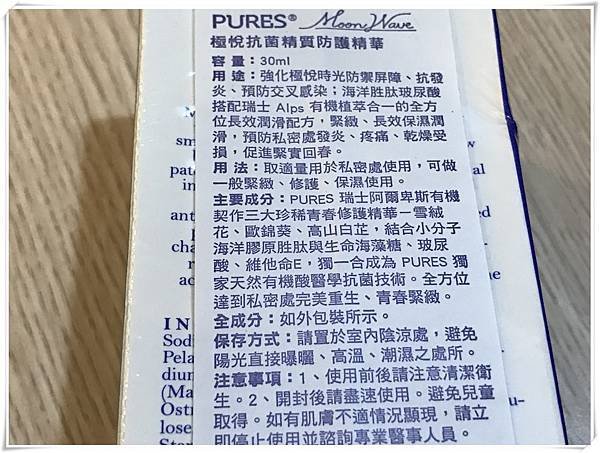 PURES® Moon Wave
極悅抗菌精質防護精華
容量：30ml
用途：強化極悅時光防禦屏障、抗發
炎、預防交叉感染；海洋胜肽玻尿酸
搭配瑞士 Alps 有機植萃合一的全方
位長效潤滑配方，緊緻、長效保濕潤
滑，預防私密處發炎、疼痛、乾燥受
損，促進緊實回春。
用法：取適量用於私密處使用，可做
一般緊緻、修護、保濕使用。
主要成分：PURES 瑞士阿爾卑斯有機
契作三大珍稀青春修護精華－雪絨
花、歐錦葵、高山白芷，結合小分子
海洋膠原胜肽與生命海藻糖、玻尿
酸、維他命E，獨一合成為 PURES 獨
家天然有機酸醫學抗菌技術。全方位
達到私密處完美重生、青春緊緻。
全成分：如外包裝所示。
保存方式：請置於室內陰涼處，避免
陽光直接曝曬、高溫、潮濕之處所。
注意事項：1、使用前後請注意清潔衛
生。2、開封後請盡速使用。避免兒童
取得。如有肌膚不適情況顯現，請立
即停止使用並諮詢專業醫事人員。
sm
pat
in
ant
cha
ac
IN
Sodi
Pela
dium
(Ma
Ostr
lose